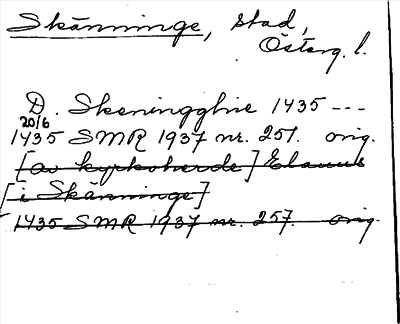 Skänninge, stad,
Österg. l.
D. Skeningghe 1435 ---
20/6
1435 SMR 1937 nr. 257. orig.
[av kyrkoherde] Elavus
[i Skänninge]
1435 SMR 1937 nr. 257. orig.